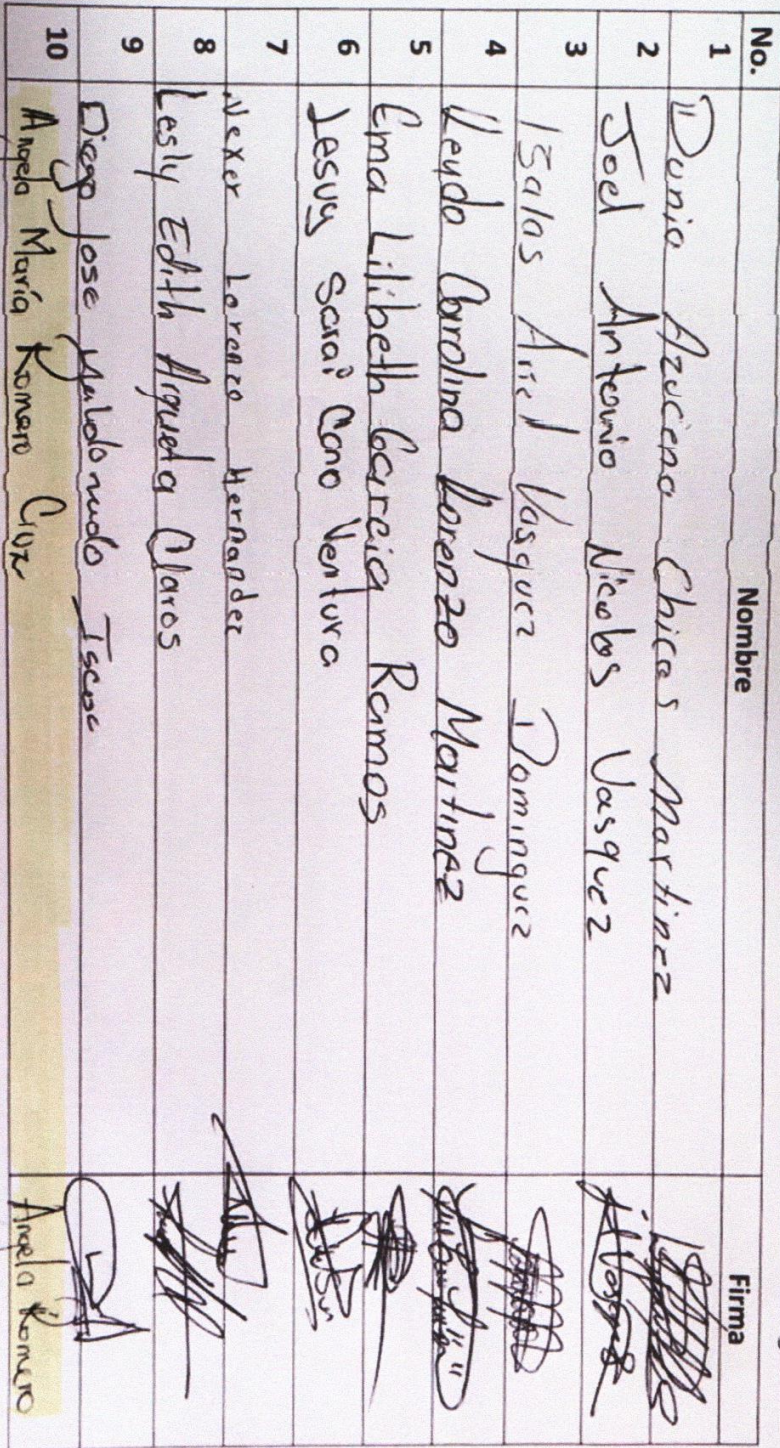 No. Nombre Firma
1 Dunia Azucena Chicas Martinez
2 Joel Antonio Nicolas Vasquez
3 Isaias Ariel Vasquez Dominguez
4 Carolina Lorenzo Martinez
5 Ema Lilibeth Garcia Ramos
6 Jesus Sarai Cano Ventura
7 Nexer Lorenzo Hernandez
8 Lesly Edith Argueta Claros
9 Diego Jose Maldonado
10 Angela María Romero Cruz Angela Romero